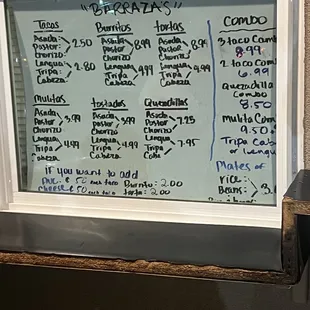 "BERRAZA'S"
Tacos
Asada
Pastor
Chorizo
2.50
Lengua
Tripa
Cabeza
2.80
Burritos
Asada
Pastor
Chorizo
8.99
Lengua
Tripa
Cabeza
9.99
tortas
Asada
Pastor
Chorizo
8.99
Lengua
Tripa
Cabeza
9.99
Mulitas
Asada
Pastor
Chorizo
3.99
Lengua
Tripa
Cabeza
4.99
tostadas
Asada
Pastor
Chorizo
3.99
Lengua
Tripa
Cabeza
4.99
Quezadillas
Asada
Pastor
Chorizo
7.25
Lengua
Tripa
Cabe
7.95
if you want to add
.50 each taco Burrito: 2.00
cheese .50 each taco torta: 2.00
COMBO
3 taco Combo
8.99
2 taco Comb
6.99
Quezadilla
Combo
8.50
Mulita Com
9.50
Tripa Cabe
or Lengu
Plates of
rice
Beans